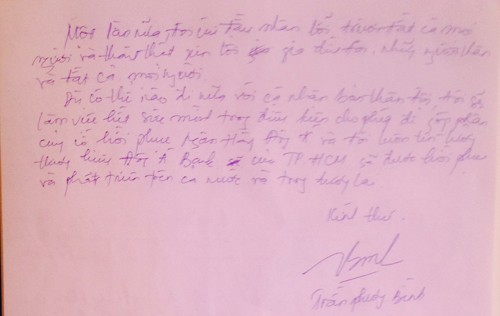 Một lần nữa, tôi xin tận nhân lỗi trước tất cả mọi
người và thành thật xin lỗi gia đình tôi, những người thân
và tất cả mọi người.
Dù có thế nào đi nữa với cá nhân bản thân tôi, tôi sẽ
làm việc hết sức mình trong điều kiện cho phép để góp phần
củng cố khôi phục Ngân Hàng Đông Á và tôi luôn tin
thương hiệu Đông Á Bank của TP HCM sẽ được khôi phục
và phát triển trên cả nước và trong
Kính thư.
Trần Phương Bình